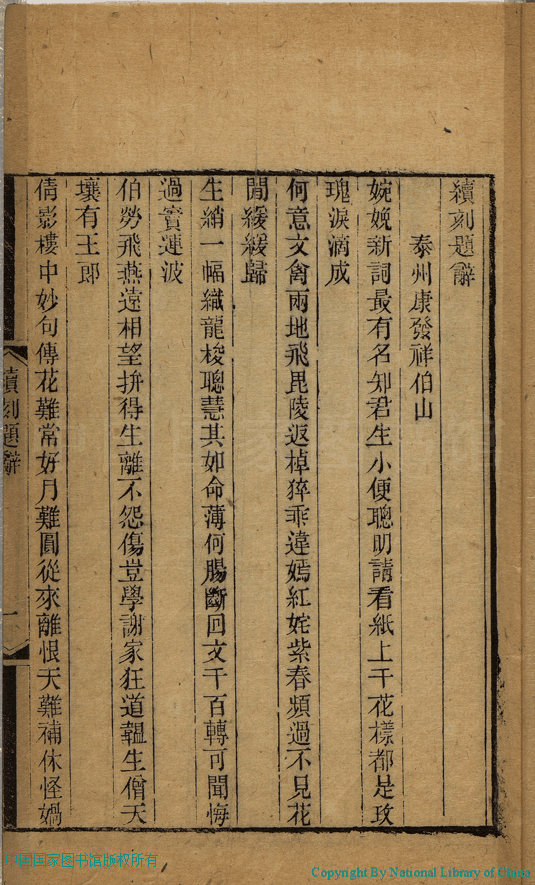 續刻題辭
泰州康發祥伯山
婉娩新詞最有名知君生小便聰明請看紙上千花樣都是玫
瑰淚滴成
何意文禽兩地飛毘陵返棹猝乖違嫣紅姹紫春頻過不見花
閒緩緩歸
生綃一幅織龍梭聰慧其如命薄何腸斷回文千百轉可聞悔
過竇連波
伯勞飛燕遠相望拚得生離不怨傷豈學謝家狂道韞生僧天
壤有王郎
倩影樓中妙句傳花難常好月難圓從來離恨天難補休怪媧
續刻題辭
一
中国国家图书馆版权所有
Copyright By National Library of China